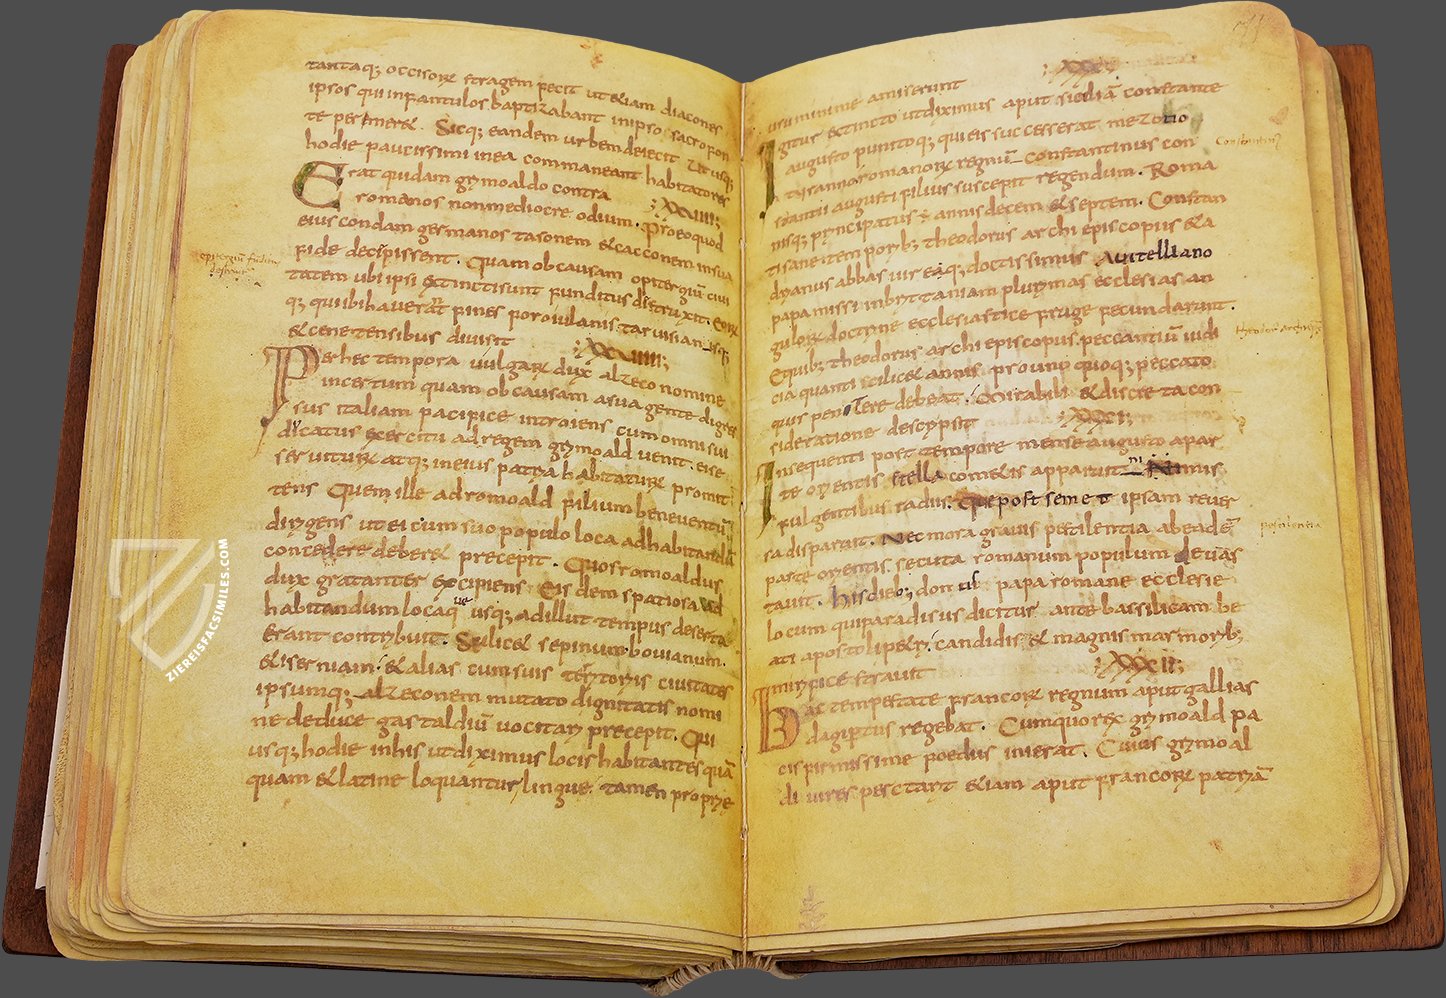 tantaq; occisorꝝ stragem fecit ut &iam diacones
ipsos qui infantulos baptizabant in ipso sacro fon
te perimer&. Sicq; eandem urbem deiecit ut usq;
hodie paucissimi in ea commaneant habitatores
Erat quidam grymoaldo contra ;XXVIII;
romanos non mediocre odium. pro eo quod
eius condam germanos tasonem & cacconem in sua
fide decipissent. Quam ob causam opitergiū civi
tatem ubi ipsi extincti sunt funditus distruxit. Eorꝝ
q; qui ibi habuerat fines foroiulanis tarvisianisq;
& cenetensibus divisit ;XXVIIII;
Per hec tempora vulgarꝝ dux alzeco nomine
incertum quam ob causam a sua gente digres
sus italiam pacifice introiens cum omni sui
dvcatus exercitu ad regem grymoald venit. ei se
serviturꝝ atq; in eius patria habitaturꝝ promit
tens Quem ille ad romoald filium beneventū
dirygens ut ei cum suo populo loca ad habitandū
concedere deber& precepit. Quos romoaldus
dux gratanter excipiens. Eis dem spatiosa ad
habitandum loca q ue usq; ad illut tempus deserta
erant contrybuit. Scilic& sepinum. bovianum.
& iserniam. & alias cum suis territoriis civitates
ipsumq; alzeconem mutato dignitatis nomi
ne de duce gastaldiū vocitari precepit. Qui
usq; hodie in his ut diximus locis habitantes quā
quam & latine loquantur lingue. tamen proprye
opitergiū
destruit
usum minime amiserunt ;XXX;
Igitur extincto ut diximus aput siciliā constante
augusto punitoq; qui eis successerat mezotio
tiranno romanorꝝ regnū constantinus con
stantii augusti filius suscepit regendum. Roma
nisq; pryncipatus e annis decem & septem. Constan
tis ane temporibꝫ theodorus archiepiscopus & a
dryanus abbas vir eq; doctissimus a vitelliano
papa missi in bryttaniam plurymas ecclesias an
gulorꝝ doctryne ecclesiastice fruge fecundarunt.
E quibꝫ theodorus archiepiscopus peccantiū iudi
cia quanti scilic& annis pro uno quoq; peccato
quis penitere debeat. Mirabili & discreta con
sideratione descrypsit ;XXXI;
Insequenti post tempore mense augusto a par
te oryentis stella com&is apparuit ni Nimis
fulgentibus radiis. que post semet ipsam rever
sa disparuit. Nec mora gravis pestilentia ab eadē
parte oryentis secuta romanum populum devas
tavit. his diebꝫ donus papa romane ecclesie
locum qui paradisus dicitur ante bassilicam be
ati apostoli petri candidis & magnis marmorybꝫ
miryfice stravit ;XXXII;
Hac tempestate francorꝝ regnum aput gallias
dagiptus regebat. Cum quo rex grymoald pa
cis firmissime foedus inierat. Cuius grymoal
di vires perctarit &iam aput francorꝝ patriā
Constantin9
theodor archiep
pestilentia
ZIEREISFACSIMILES.COM